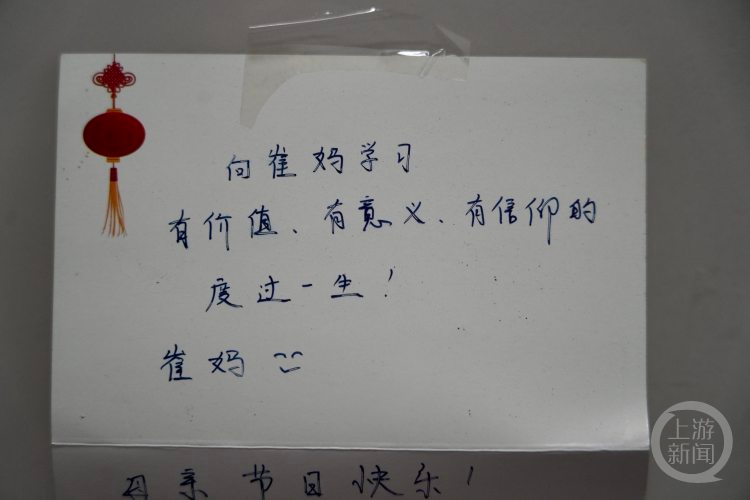 向崔妈学习
有价值、有意义、有信仰的
度过一生！
崔妈
母亲节日快乐！
上游新闻